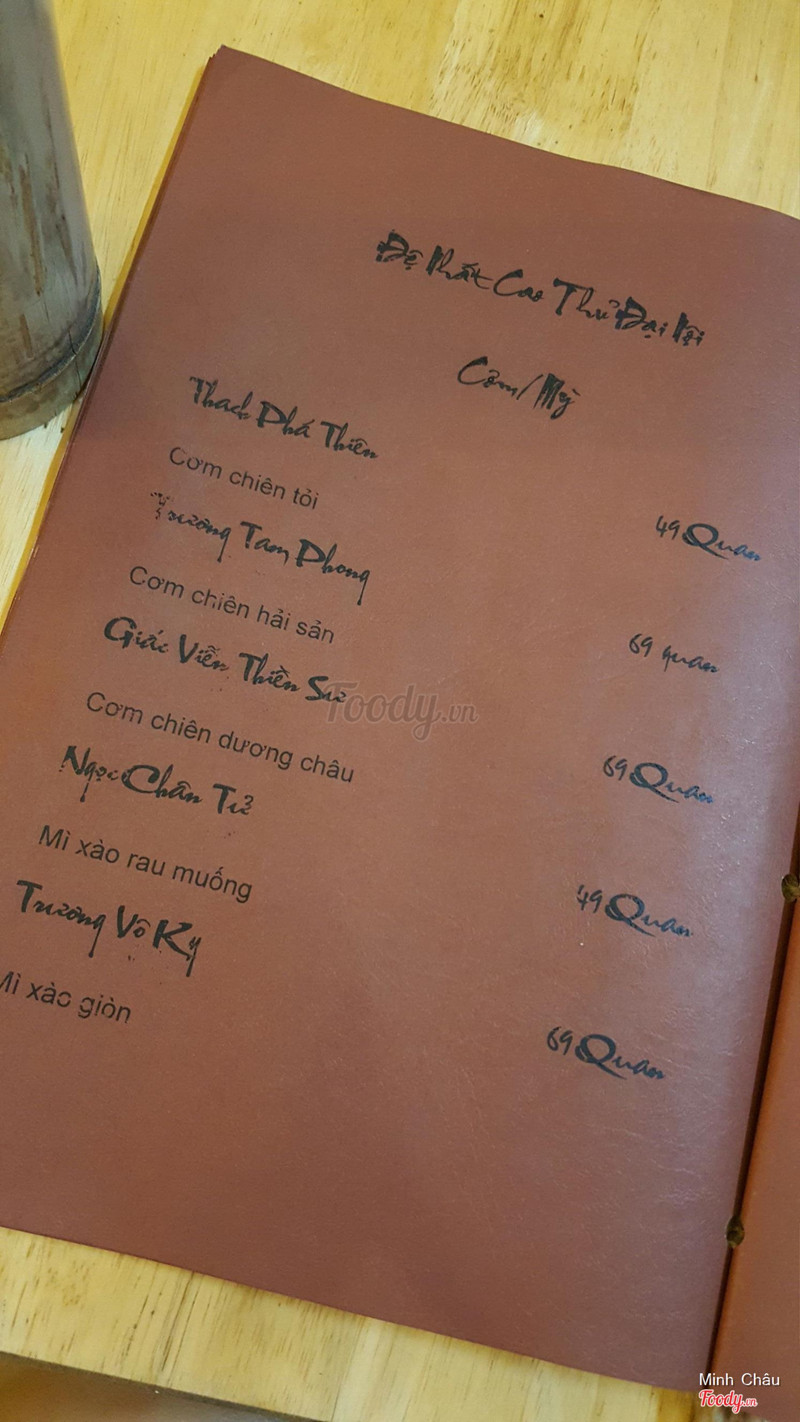 Đệ Nhất Cao Thủ Đại Nội
Cơm/Mỳ
Thạch Phá Thiên
Cơm chiên tỏi
49 Quan
Trương Tam Phong
Cơm chiên hải sản
69 quan
Giác Viễn Thiền Sư
Cơm chiên dương châu
69 Quan
Ngọc Chân Tử
Mì xào rau muống
49 Quan
Trương Vô Kỵ
Mì xào giòn
69 Quan
Foody.vn
Minh Châu
Foody.vn